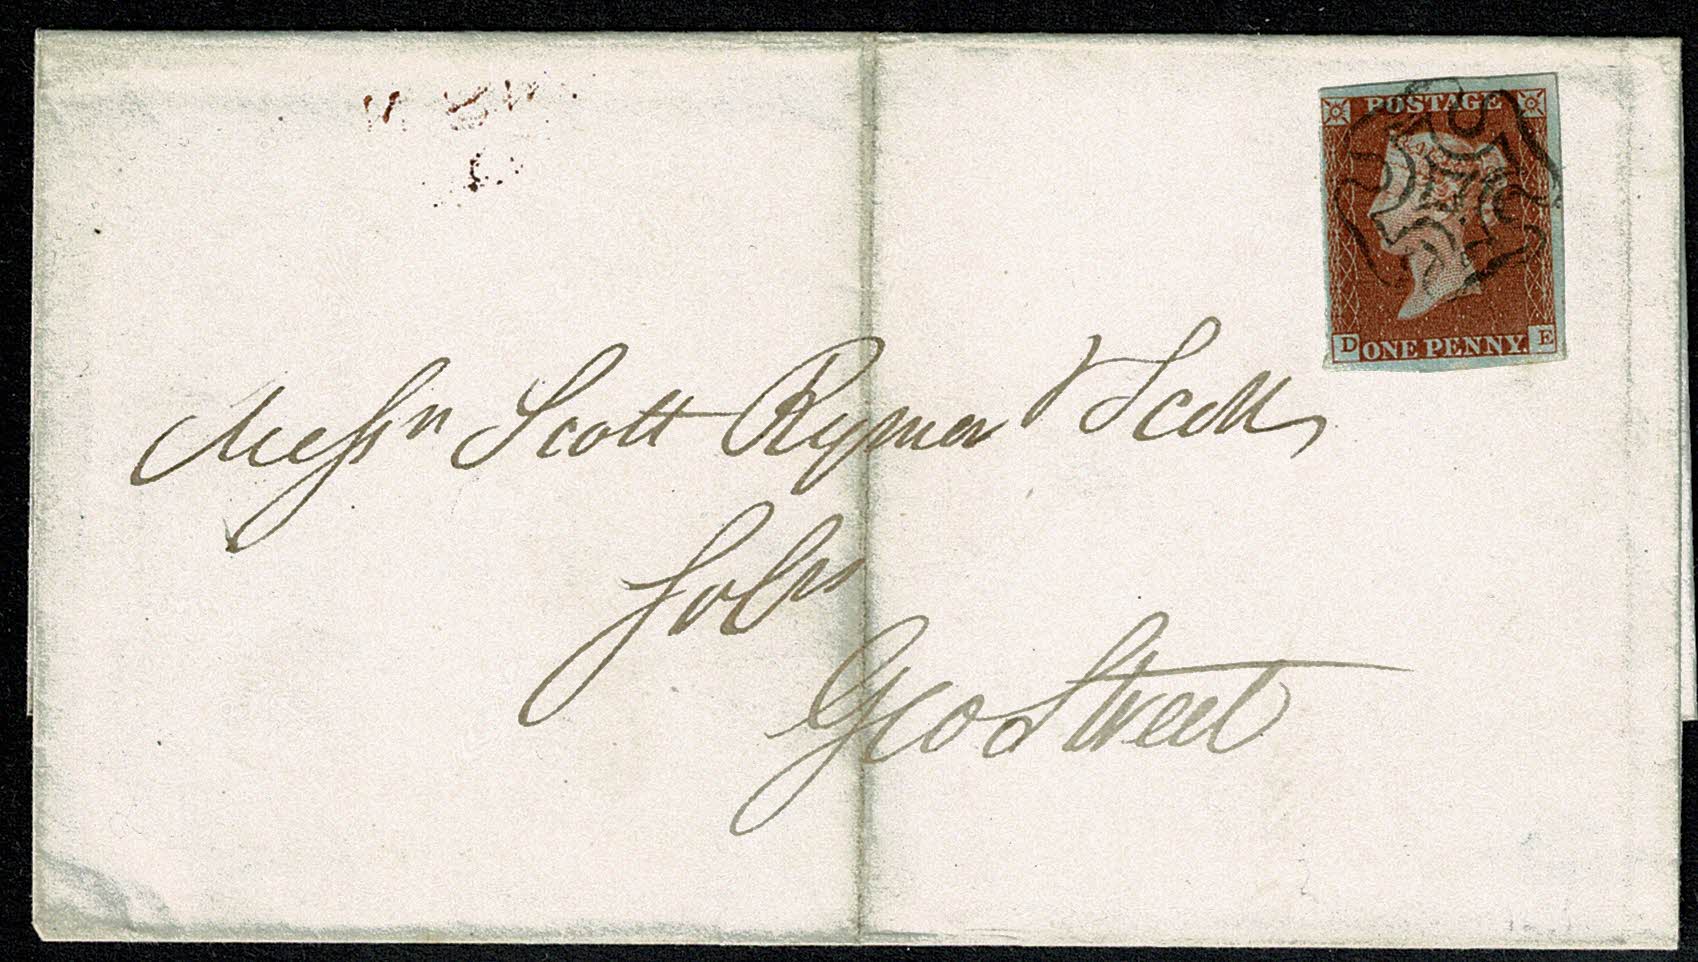 POSTAGE
D ONE PENNY. E
Messrs Scott Rymer & Scott
Solrs
Geo Street